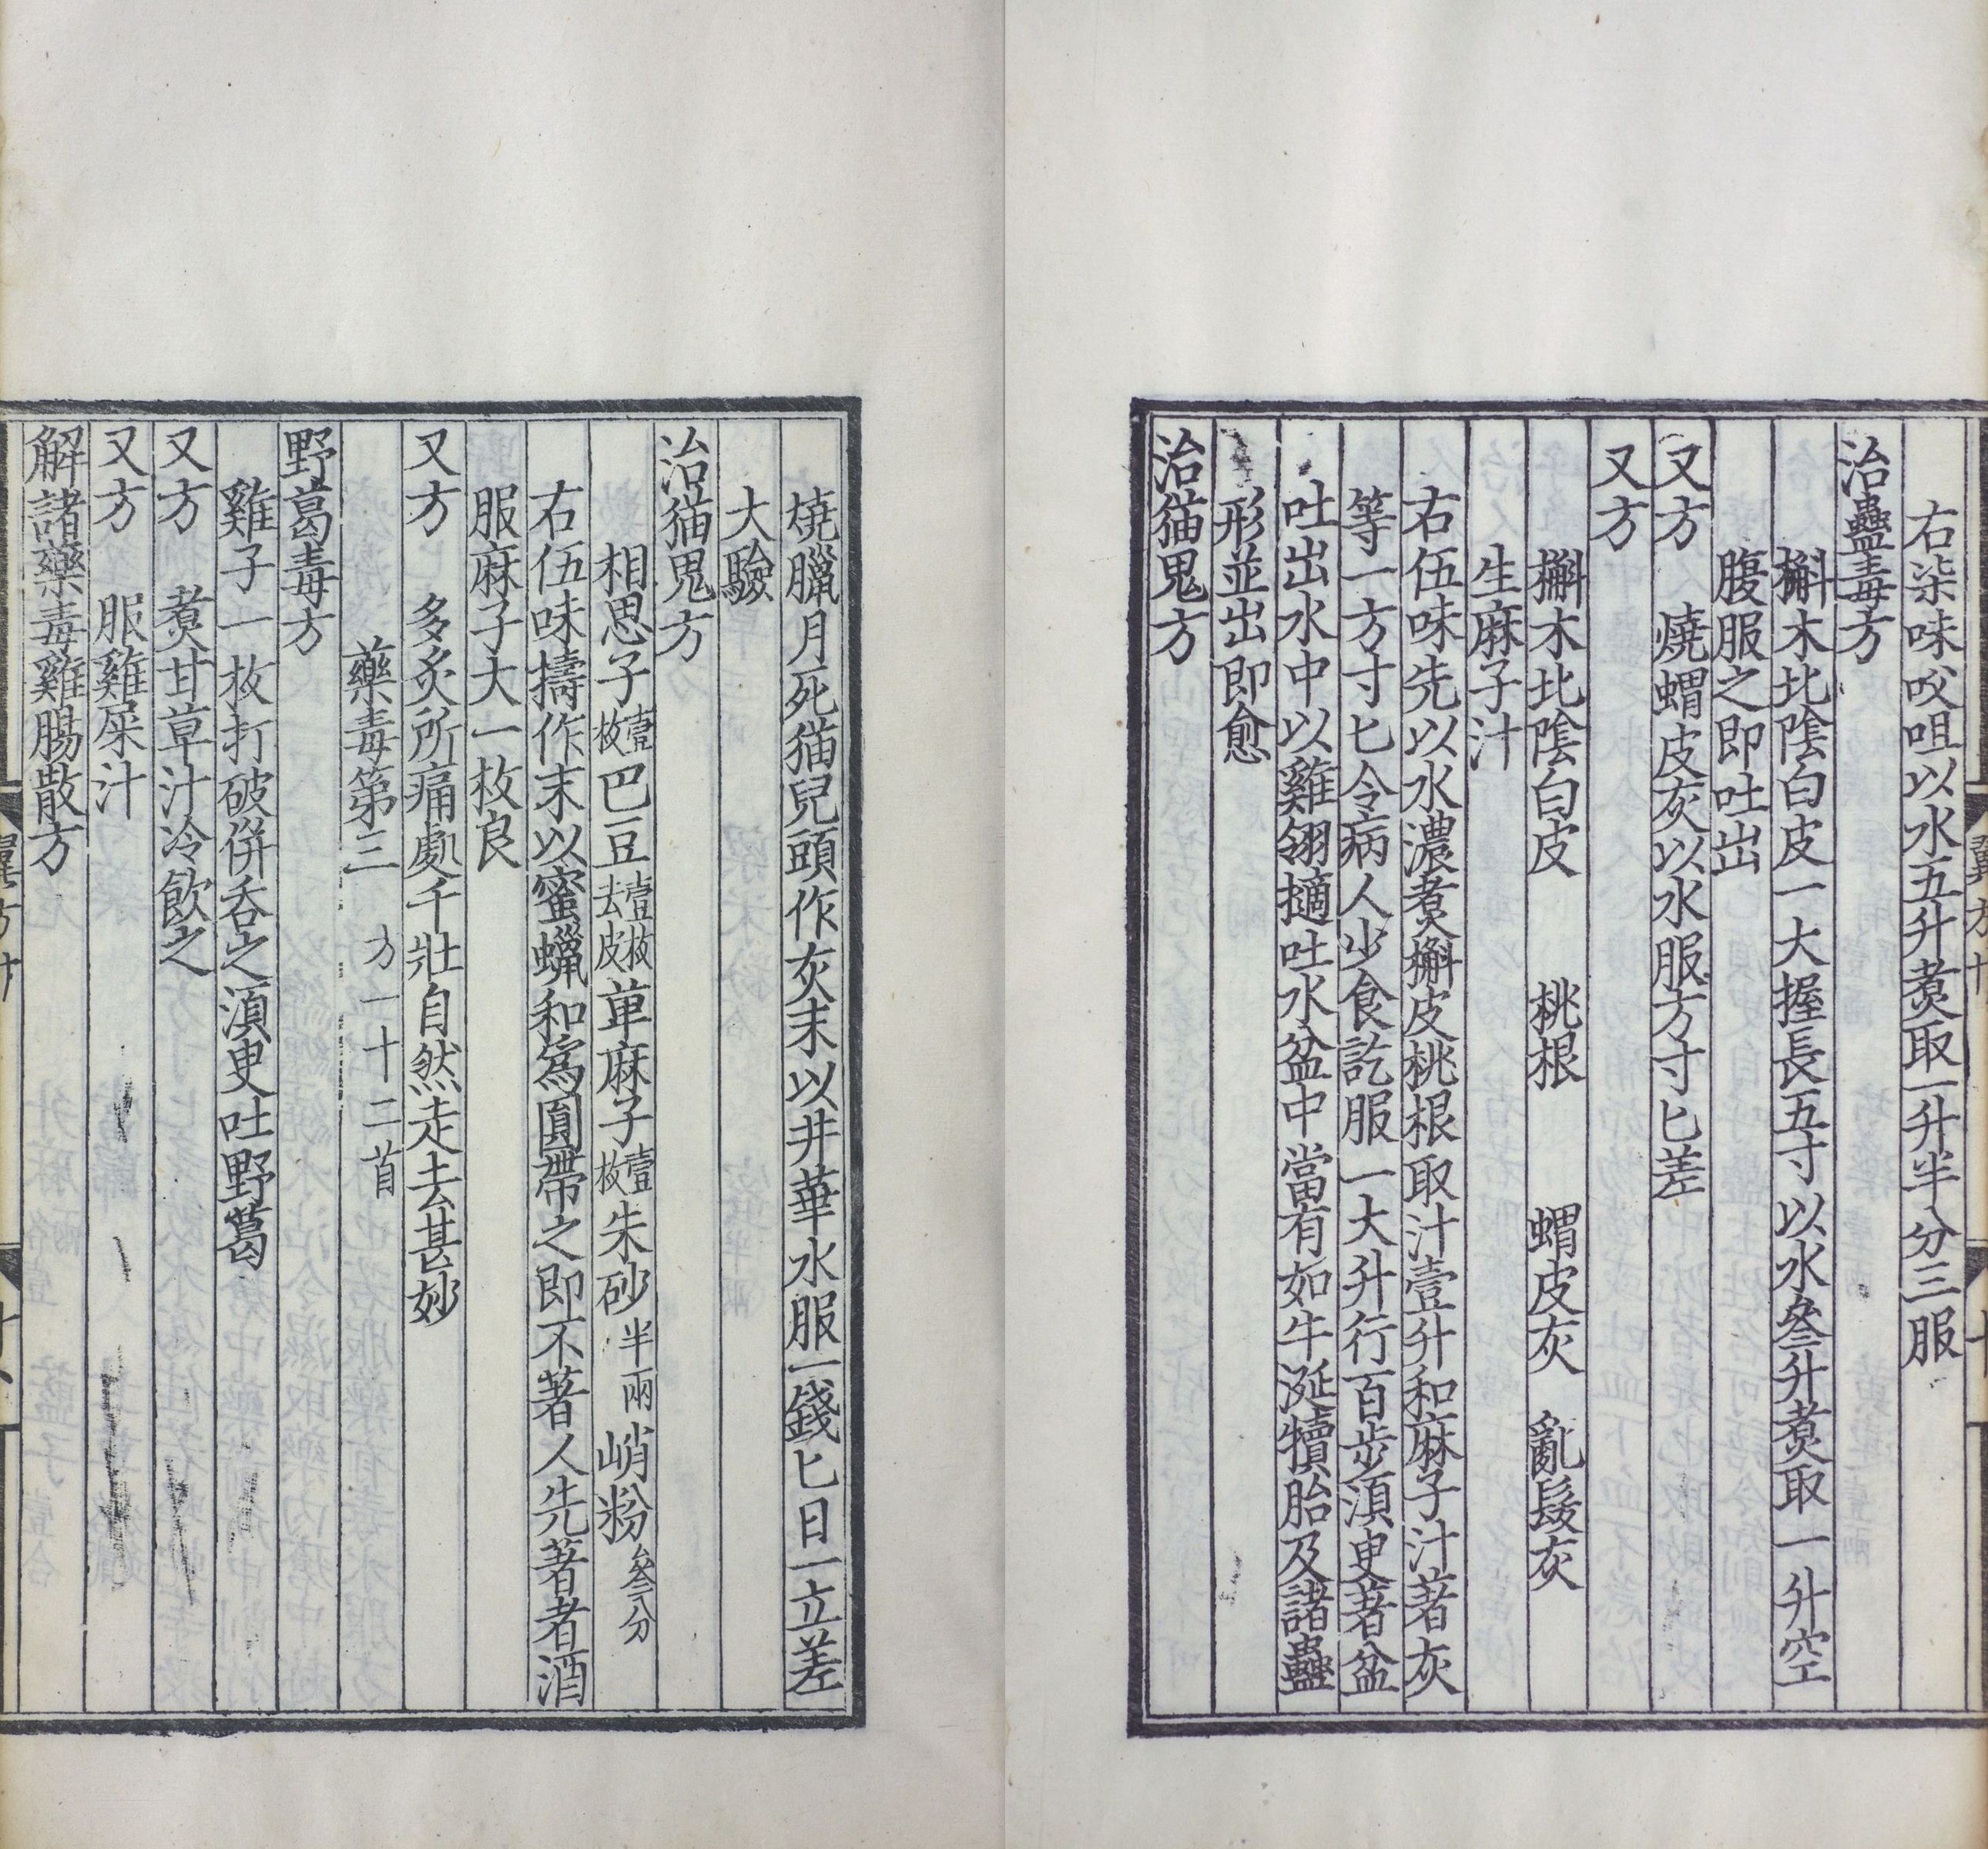 右柒味㕮咀以水五升煑取一升半分三服
治蠱毒方
槲木北陰白皮一大握長五寸以水叄升煑取一升空
腹服之即吐出
又方　燒蝟皮灰以水服方寸匕差
又方
槲木北陰白皮　桃根　蝟皮灰　亂髮灰
生麻子汁
右伍味先以水濃煑槲皮桃根取汁壹升和麻子汁著灰
等一方寸匕令病人少食訖服一大升行百步湏臾著盆
吐出水中以雞翎擿吐水盆中當有如牛涎犢胎及諸蠱
形並出即愈
治猫鬼方
燒臘月死猫兒頭作灰末以井華水服一錢匕日一立差
大驗
治猫鬼方
相思子壹枚巴豆壹枚去皮萆麻子壹枚朱砂半兩峭粉叄分
右伍味擣作末以蜜蠟和爲圓帶之即不著人先著者酒
服麻子大一枚良
又方　多灸所痛處千壯自然走去甚妙
藥毒第三　方一十二首
野葛毒方
雞子一枚打破併吞之湏臾吐野葛
又方　煑甘草汁冷飲之
又方　服雞屎汁
解諸藥毒雞腸散方